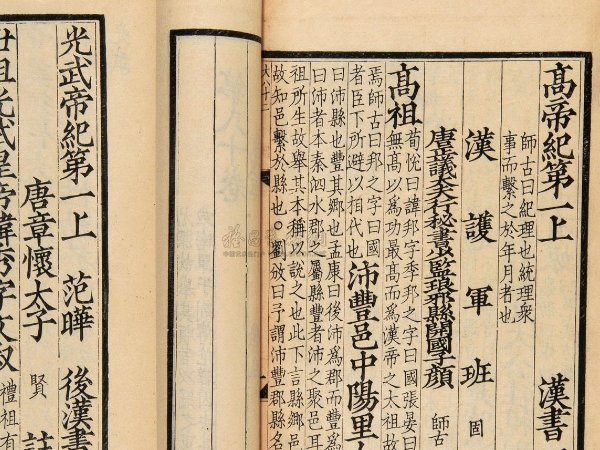 高帝紀第一上 漢書
師古曰紀理也統理衆
事而繫之於年月者也
漢護軍班固
唐正議大夫行秘書少監琅邪縣開國子顏師古
高祖
荀悅曰諱邦字季邦之字曰國張晏曰
無髙以爲功最髙而爲漢帝之太祖故
焉師古曰邦之字曰國
者臣下所避以相代也
沛豐邑中陽里
曰沛縣也豐其鄉也孟康曰後沛爲郡而豐爲縣
曰沛者本秦泗水郡之屬縣豐者沛之聚邑耳
祖所生故舉其本稱以說之也此下言縣鄉邑
故知邑繫於縣也。劉攽曰予謂沛豐郡縣名
光武帝紀第一上 范曄 後漢書
唐章懷太子賢註
世祖光武皇帝諱秀字文叔
禮祖有